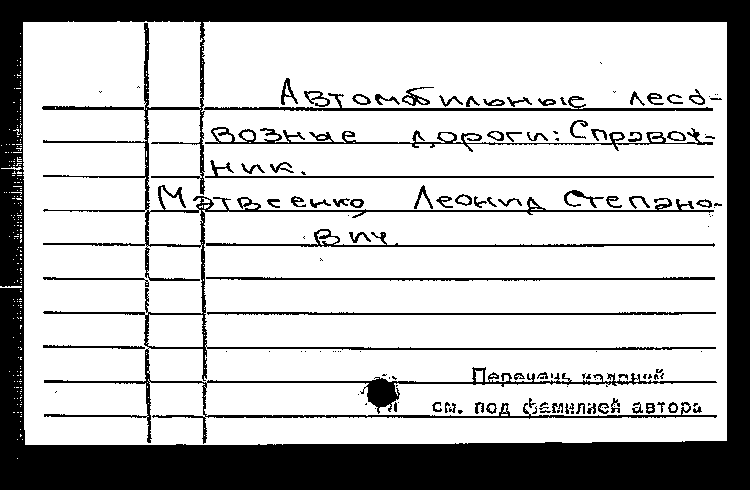 Автомобильные лесо-
возные дороги: Справоч-
ник.
Матвеенко, Леонид Степано-
вич.
Перечень изданий
см. под фамилией автора